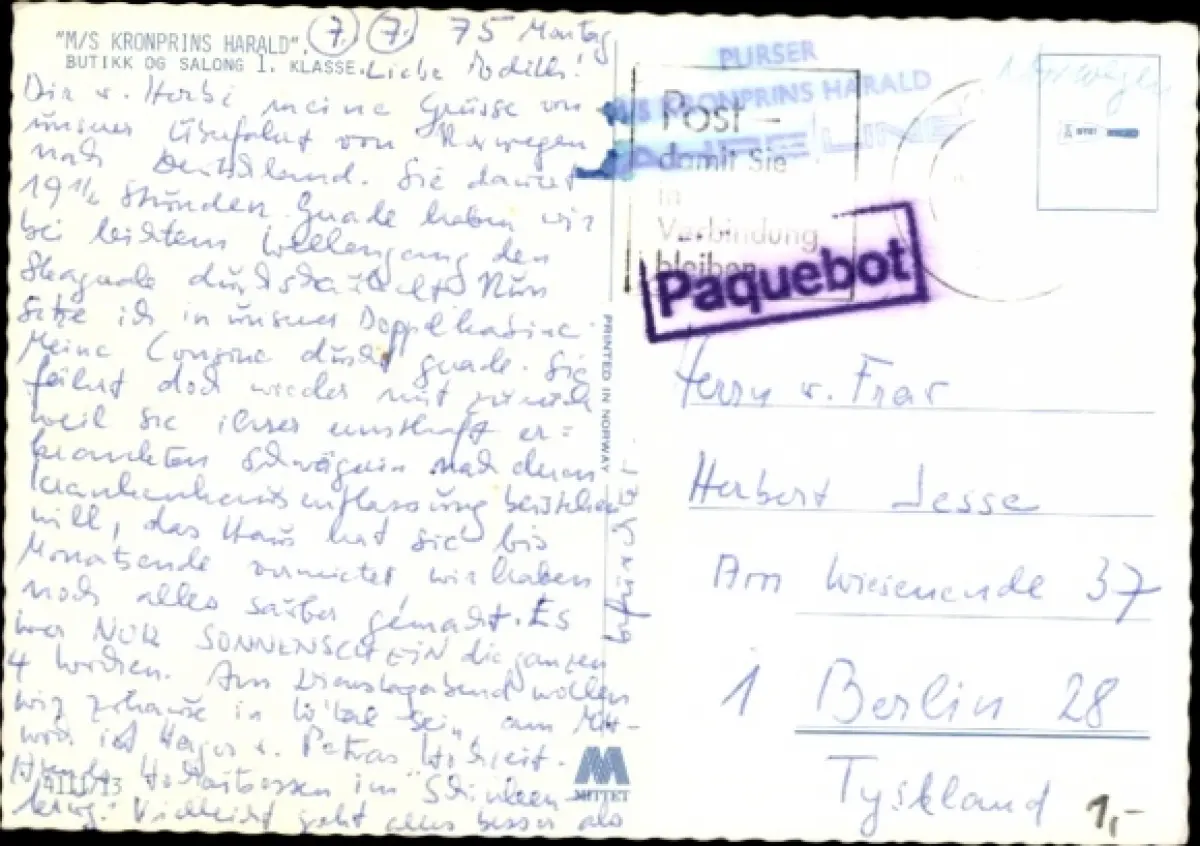 "M/S KRONPRINS HARALD",
BUTIKK OG SALONG 1. KLASSE.
7. 7. 75 Montag
Liebe
Dir u. Herbi meine Grüsse von
unserer Überfahrt von Norwegen
nach Deutschland. Sie dauert
19 1/2 Stunden. Grade haben wir
bei leichtem Wellengang den
Nun
sitze ich in unserer Doppelkabine.
Meine Cousine grade. Sie
fährt doch wieder mit zurück
weil sie ihrer ernsthaft er=
krankten Schwägerin nach deren
Krankenhausentlassung beistehen
will, das Haus hat sie bis
Monatsende vermietet wir haben
noch alles sauber gemacht. Es
war NUR SONNENSCHEIN die ganzen
4 Wochen. Am Dienstagabend wollen
wir zuhause in W'tal sein, am Mitt-
woch ist u. Petras Hochzeit.
Abends Hochzeitsessen im "Schinken-
krug." Vielleicht geht alles besser als
4111/13
PRINTED IN NORWAY
MITTET
PURSER
M/S KRONPRINS HARALD
JAHRE LINE
Post –
damit Sie
in
Verbindung
bleiben
Paquebot
Norwegen
Herrn u. Frau
Herbert Jesse
Am Wiesenende 37
1 Berlin 28
Tyskland
1,-